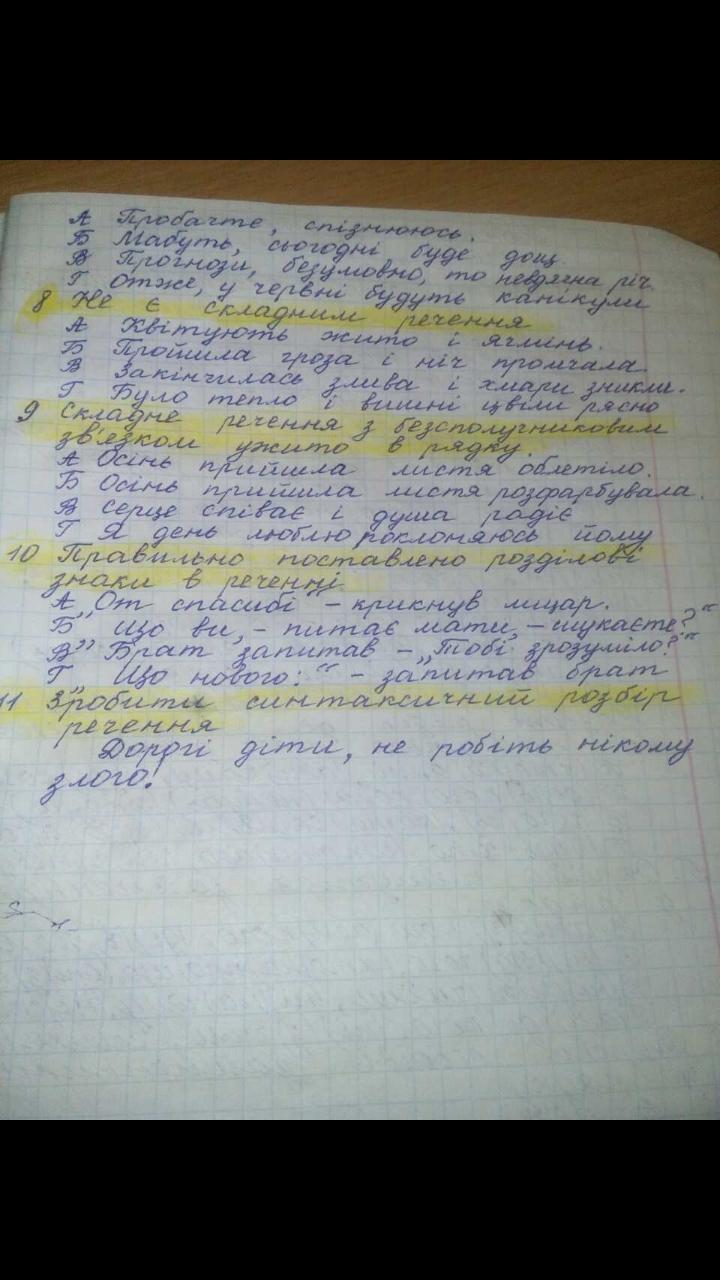 А Пробачте, спізнююсь.
Б Мабуть, сьогодні буде дощ.
В Прогнози, безумовно, то невдячна річ.
Г Отже, у червні будуть канікули
8 Не є складним речення
А Квітують жито і ячмінь.
Б Пройшла гроза і ніч промчала.
В Закінчилась злива і хмари зникли.
Г Було тепло і вишні цвіли рясно
9 Складне речення з безсполучниковим
зв'язком ужито в рядку.
А Осінь прийшла листя облетіло.
Б Осінь прийшла листя розфарбувала.
В Серце співає і душа радіє
Г Я день люблю поклоняюсь йому
10 Правильно поставлено розділові
знаки в реченні.
А „От спасибі" – крикнув лицар.
Б „ Що ви, – питає мати, – шукаєте?"
В " Брат запитав – „Тобі зрозуміло?"
Г „Що нового:" – запитав брат
11 Зробити синтаксичний розбір
речення
Дорогі діти, не робіть нікому
злого!